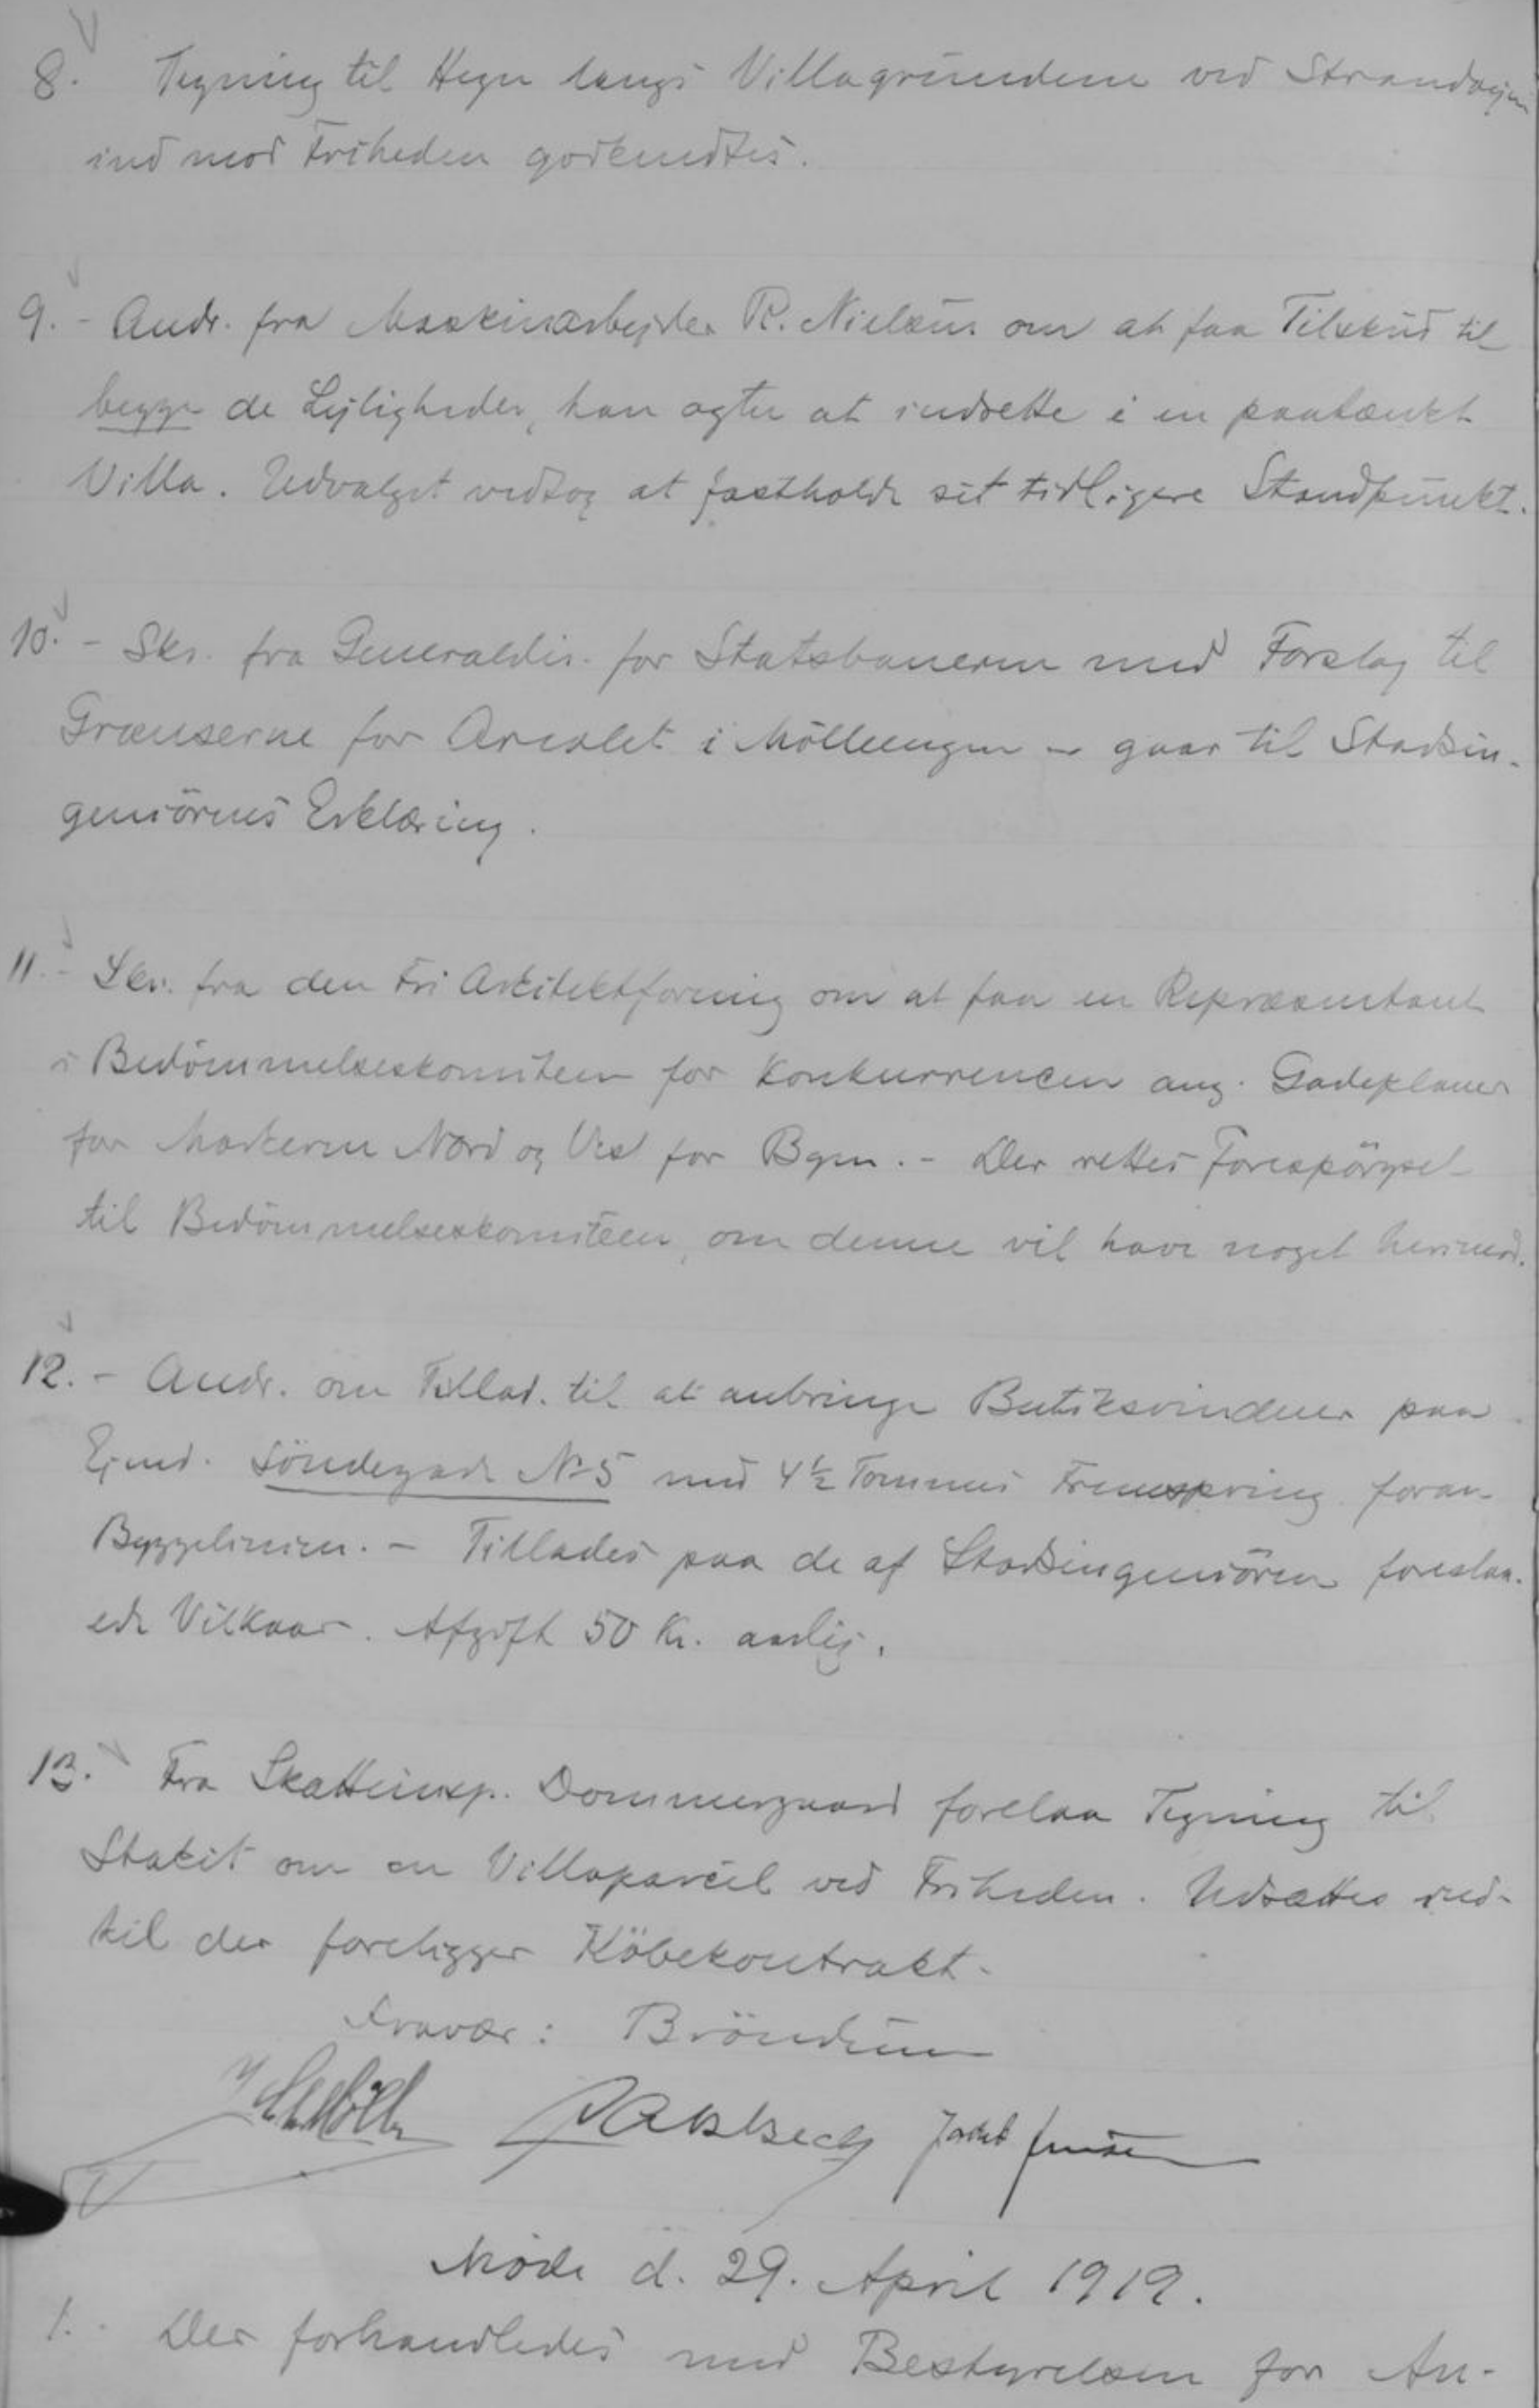 8. Tegning til Hegn langs Villagrundene ved Strandvejen
ind mod Friheden godkendtes.
9. - Andr. fra Maskinarbejder R. Nielsen om at faa Tilskud til
begge de Lejligheder, han agter at indrette i en paatænkt
Villa. Udvalget vedtog at fastholde sit tidligere Standpunkt.
10. - Skr. fra Generaldir. for Statsbanerne med Forslag til
Grænserne for Arealet i Mølleengen - gaar til Stadsin-
geniørens Erklæring.
11. - Skr. fra den Fri Arkitektforening om at faa en Repræsentant
i Bedømmelseskomiteen for Konkurrencen ang. Gadeplaner
for Markerne Nord og Vest for Byen. - Der rettes Forespørgsel
til Bedømmelseskomiteen, om denne vil have noget herimod.
12. - Andr. om Tillad. til at anbringe Butiksvinduer paa
Ejend. Søndergade No 5 med 4 1/2 Tommes Fremspring foran
Byggelinien. - Tillades paa de af Stadsingeniøren foreslaa-
ede Vilkaar. Afgift 50 Kr. aarlig.
13. Fra Skatteinsp. Dommergaard forelaa Tegning til
Stakit om en Villaparcel ved Friheden. Udsættes ind-
til der foreligger Købekontrakt.
Fravær: Brøndum
Jakob Jensen
Møde d. 29. April 1919.
1. - Der forhandledes med Bestyrelsen for An-